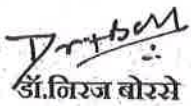 डॉ.निरज बोरसे